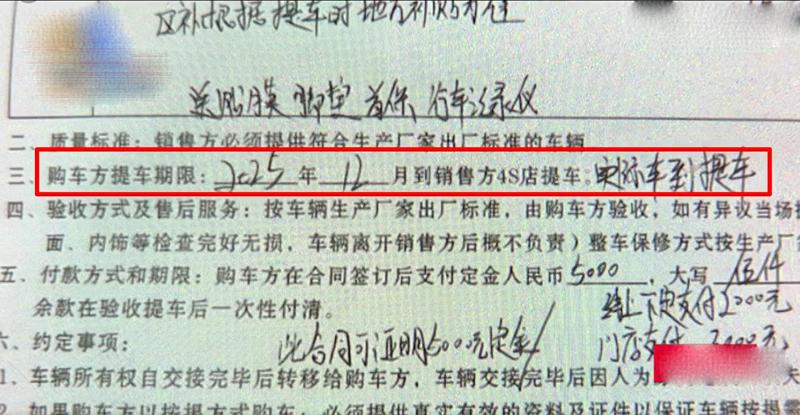 区补根据提车时地方补贴为准
送贴膜 脚垫 首保 行车记录仪
二、质量标准：销售方必须提供符合生产厂家出厂标准的车辆
三、购车方提车期限：2025年12月到销售方4S店提车。实际车到提车
四、验收方式及售后服务：按车辆生产厂家出厂标准，由购车方验收，如有异议当场
面、内饰等检查完好无损，车辆离开销售方后概不负责）整车保修方式按生产厂
五、付款方式和期限：购车方在合同签订后支付定金人民币5000，大写 伍仟
余款在验收提车后一次性付清。 线上下定支付2000元
六、约定事项： 此合同可证明5000元定金 门店支付 3000元
1、车辆所有权自交接完毕后转移给购车方，车辆交接完毕后因人为
2、如果购车方以按揭方式购车，必须提供真实有效的资料及证件以保证车辆按揭